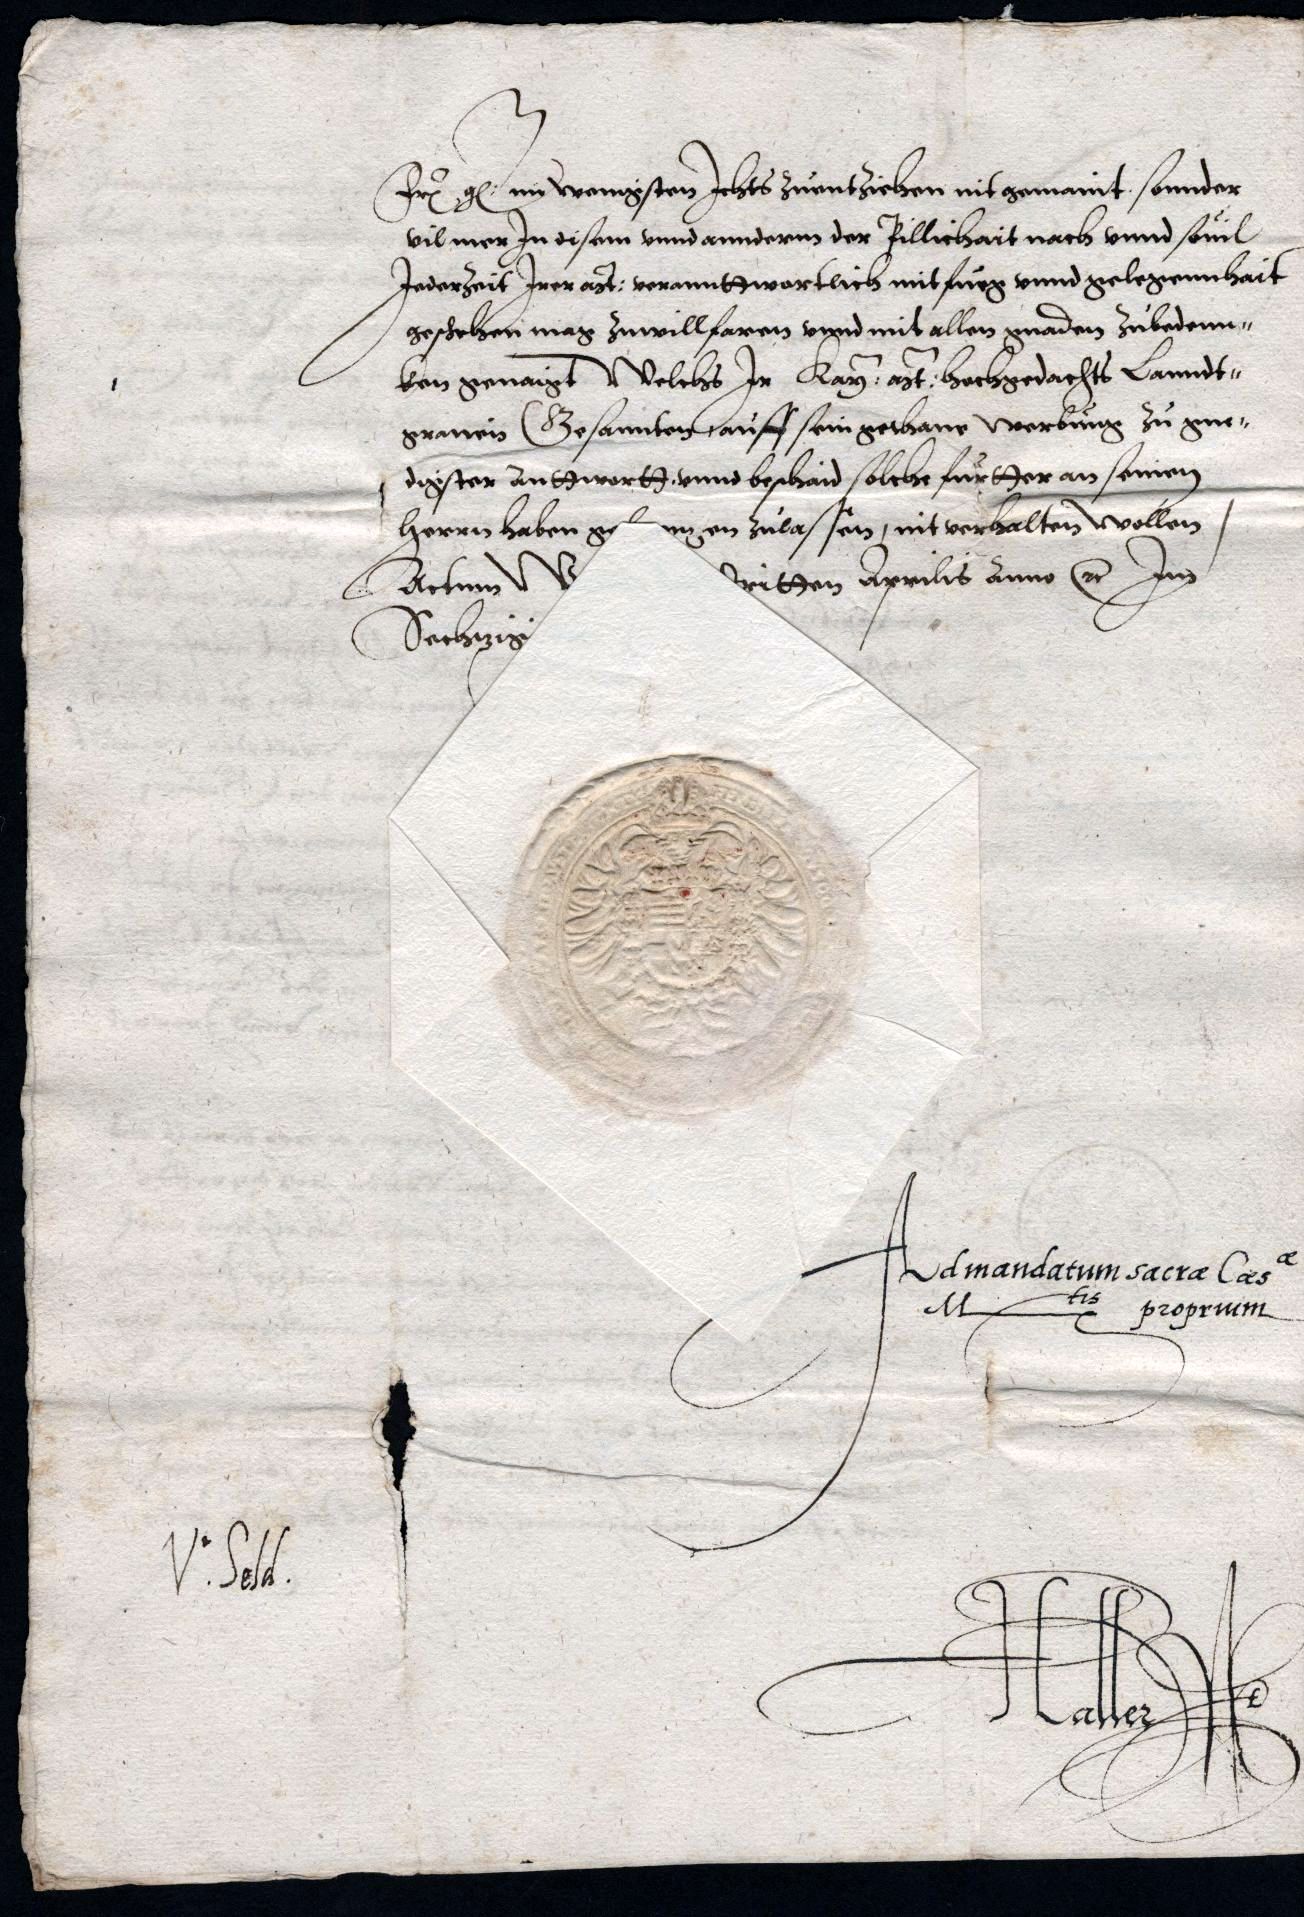 Irer gl: im wenigsten Ichts zuentziehen nit gemaint. sonnder
vil mer In disem vnnd annderm der Pillichait nach vnnd souil
Jederzeit Irer Mt: veranttwortlich mit fueg vnnd gelegennhait
geschehen mag zuwillfaren vnnd mit allen gnaden zubedenn=
ken genaigt Welchs Ir Kay: Mt: hochgedachts Lanndt=
grauen Gesannten, auff sein gethane werbung zu gne=
digster Anttwortt, vnnd beschaid solche fürtter an seinen
Herrn haben gelangen zulassen, nit verhalten wöllen
Actum W ritten Aprilis Anno &c Im
Sechzigi
Ad mandatum sacræ Cæs æ
M tis proprium
Vt. Seld.
Haller